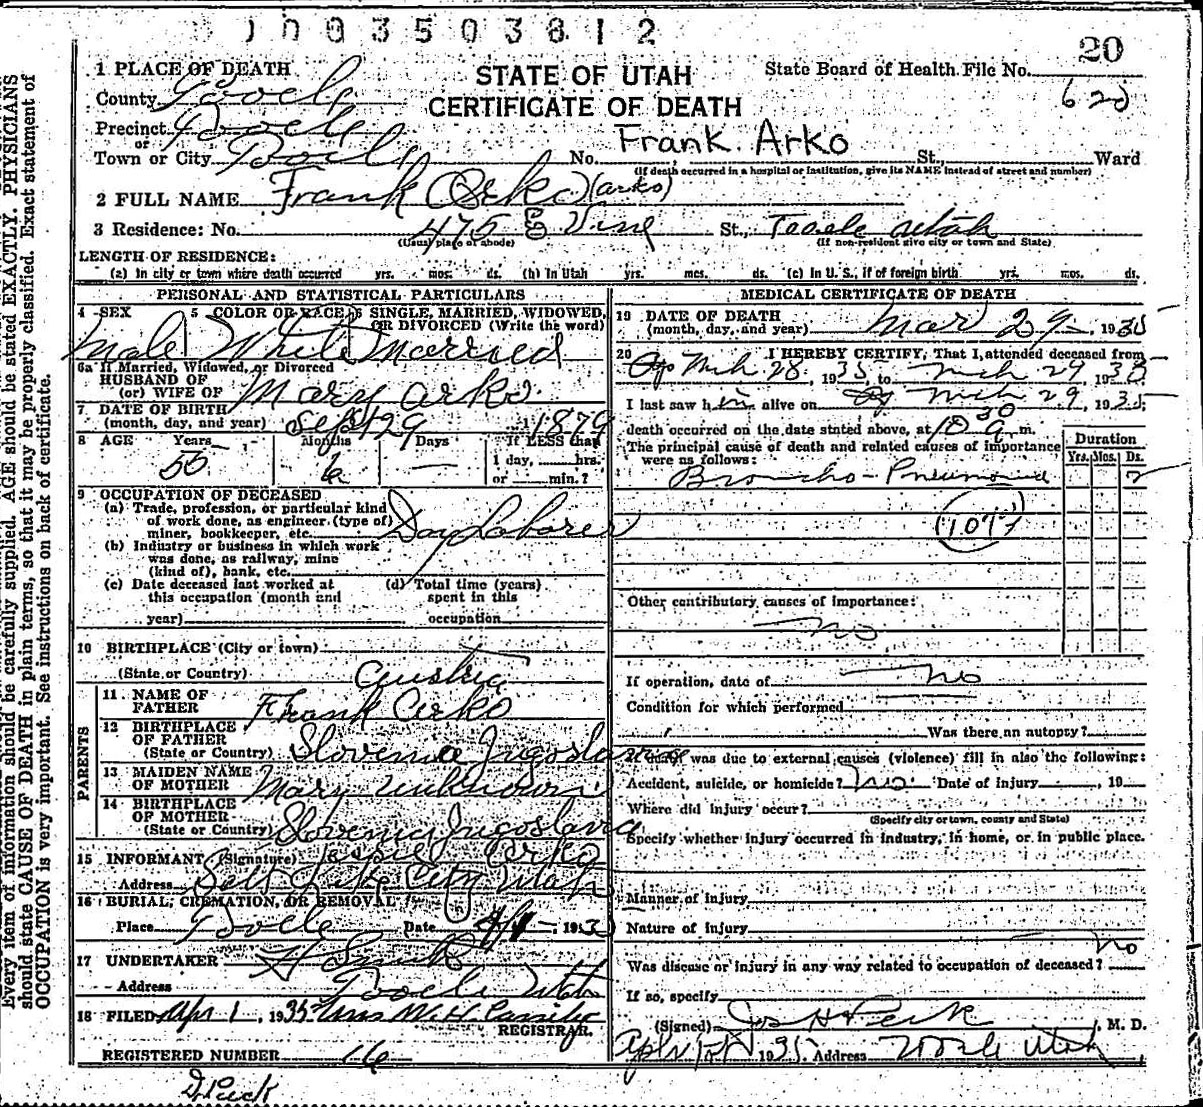 20
1 PLACE OF DEATH
STATE OF UTAH
State Board of Health File No.
County Tooele
CERTIFICATE OF DEATH
Precinct Tooele
or
Frank Arko
Town or City Tooele No. St., Ward
(If death occurred in a hospital or institution, give its NAME instead of street and number)
2 FULL NAME Frank Arko (arko)
3 Residence: No. 475 E Vine St., Tooele Utah
(Usual place of abode) (If non-resident give city or town and State)
LENGTH OF RESIDENCE:
(a) In city or town where death occurred yrs. mos. ds. (b) In Utah yrs. mos. ds. (c) In U. S., if of foreign birth yrs. mos. ds.
PERSONAL AND STATISTICAL PARTICULARS
4 SEX 5 COLOR OR RACE 6 SINGLE, MARRIED, WIDOWED,
OR DIVORCED (Write the word)
Male White Married
6a If Married, Widowed, or Divorced
HUSBAND OF
(or) WIFE OF Mary Arko
7 DATE OF BIRTH
(month, day, and year) Sept 29 1879
8 AGE Years Months Days If LESS than
55 6 — 1 day, hrs.
or min.?
9 OCCUPATION OF DECEASED
(a) Trade, profession, or particular kind
of work done, as engineer (type of)
miner, bookkeeper, etc. Day Laborer
(b) Industry or business in which work
was done, as railway, mine
(kind of), bank, etc.
(c) Date deceased last worked at (d) Total time (years)
this occupation (month and spent in this
year) occupation
10 BIRTHPLACE (City or town)
(State or Country) Austria
PARENTS
11 NAME OF
FATHER Frank Arko
12 BIRTHPLACE
OF FATHER
(State or Country) Slovenia Jugoslavia
13 MAIDEN NAME
OF MOTHER Mary Unknown
14 BIRTHPLACE
OF MOTHER
(State or Country) Slovenia Jugoslavia
15 INFORMANT (Signature) Arko
Address Salt Lake City Utah
16 BURIAL, CREMATION, OR REMOVAL
Place Tooele Date 4/1 1935
17 UNDERTAKER
Address Tooele Utah
18 FILED Apr 1, 1935 Mrs M. H.
REGISTRAR.
REGISTERED NUMBER 16
MEDICAL CERTIFICATE OF DEATH
19 DATE OF DEATH
(month, day, and year) Mar 29 1935
20 I HEREBY CERTIFY, That I attended deceased from
Mch 28, 1935, to Mch 29 193
I last saw him alive on Mch 29, 1935;
death occurred on the date stated above, at 10 30 a m.
The principal cause of death and related causes of importance
were as follows:
Duration
Yrs. Mos. Ds.
Broncho-Pneumonia
Other contributory causes of importance:
no
If operation, date of no
Condition for which performed
Was there an autopsy?
was due to external causes (violence) fill in also the following:
Accident, suicide, or homicide? no Date of injury , 19
Where did injury occur?
(Specify city or town, county and State)
Specify whether injury occurred in industry, in home, or in public place.
Manner of injury
Nature of injury
Was disease or injury in any way related to occupation of deceased? no
If so, specify
(Signed) Jos H Peck, M. D.
1935 Address Tooele Utah
Every item of information should be carefully supplied. AGE should be stated EXACTLY. PHYSICIANS
should state CAUSE OF DEATH in plain terms, so that it may be properly classified. Exact statement of
OCCUPATION is very important. See instructions on back of certificate.